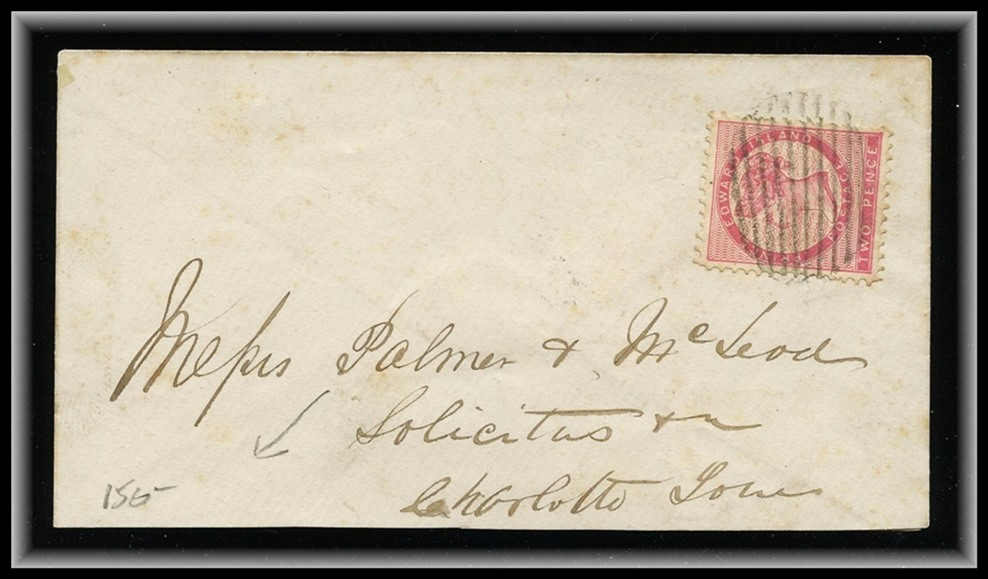 PRINCE EDWARD ISLAND POSTAGE
TWO PENCE
Messrs Palmer & McLeod
Solicitors &c
Charlotte Town